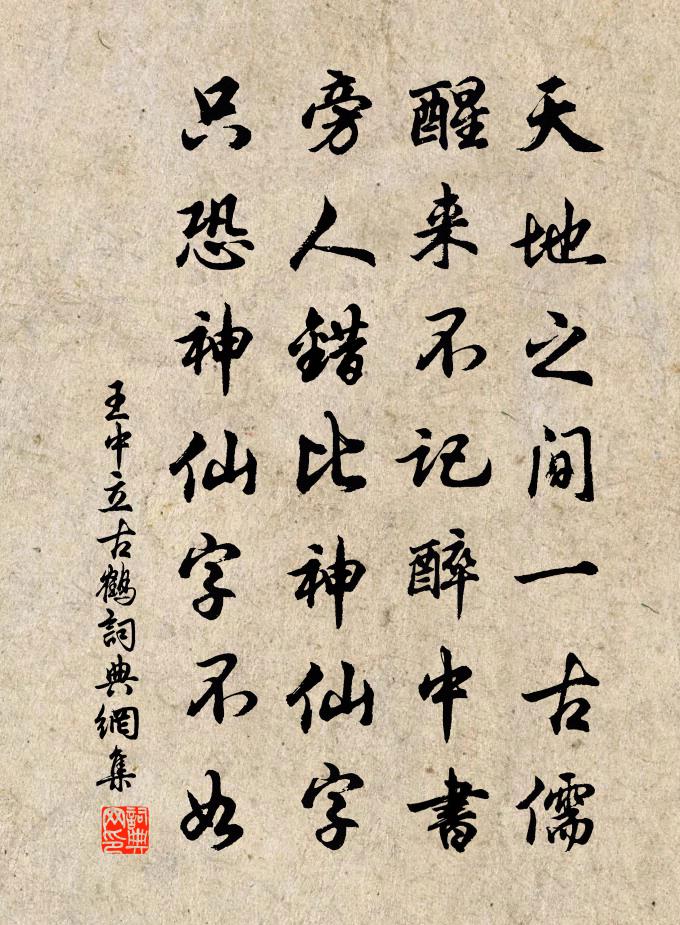 天地之间一古儒
醒来不记醉中書
旁人錯比神仙字
只恐神仙字不如
王中立古鶴詞典網集
詞典網印